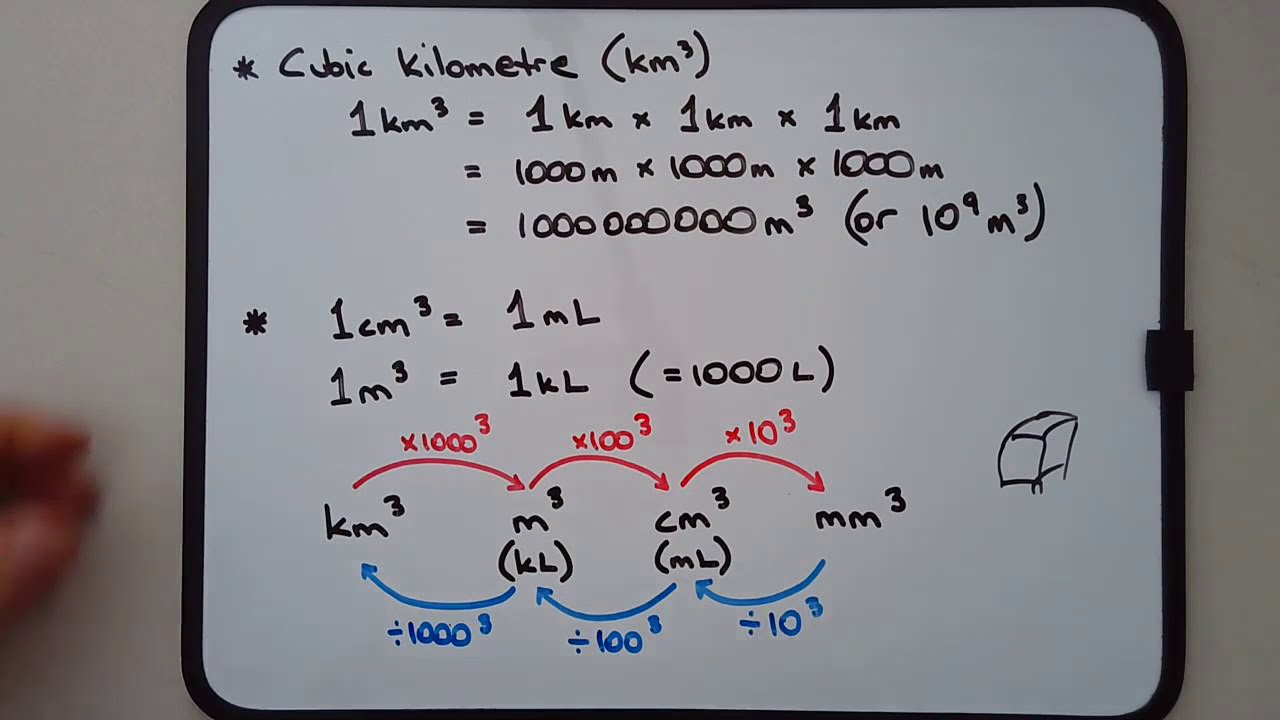 * Cubic Kilometre (km³)
1km³ = 1km × 1km × 1km
= 1000m × 1000m × 1000m
= 1000000000m³ (or 10⁹ m³)
* 1cm³ = 1mL
1m³ = 1kL (=1000L)
×1000³ ×100³ ×10³
km³ m³ cm³ mm³
(kL) (mL)
÷1000³ ÷100³ ÷10³